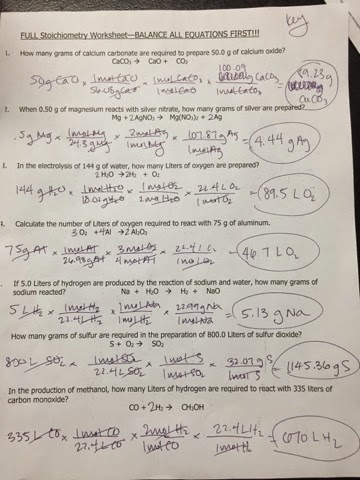 key
FULL Stoichiometry Worksheet—BALANCE ALL EQUATIONS FIRST!!!
1. How many grams of calcium carbonate are required to prepare 50.0 g of calcium oxide?
CaCO₃ → CaO + CO₂
50g CaO x 1molCaO / 56.08gCaO x 1molCaCO₃ / 1molCaO x 100.09 g CaCO₃ / 1molCaCO₃ 89.23g CaCO₃
2. When 0.50 g of magnesium reacts with silver nitrate, how many grams of silver are prepared?
Mg + 2AgNO₃ → Mg(NO₃)₂ + 2Ag
.5g Mg x 1molMg / 24.3gMg x 2molAg / 1molMg x 107.87g Ag / 1molAg 4.44 g Ag
3. In the electrolysis of 144 g of water, how many Liters of oxygen are prepared?
2H₂O → 2H₂ + O₂
144 g H₂O x 1molH₂O / 18.02gH₂O x 1molO₂ / 2molH₂O x 22.4 L O₂ / 1molO₂ 89.5 L O₂
4. Calculate the number of Liters of oxygen required to react with 75 g of aluminum.
3O₂ + 4Al → 2Al₂O₃
75g Al x 1molAl / 26.98gAl x 3molO₂ / 4molAl x 22.4 L O₂ / 1molO₂ 46.7 L O₂
5. If 5.0 Liters of hydrogen are produced by the reaction of sodium and water, how many grams of
sodium reacted? Na + H₂O → H₂ + NaO
5 L H₂ x 1molH₂ / 22.4LH₂ x 1molNa / 1molH₂ x 22.99gNa / 1molNa 5.13 g Na
How many grams of sulfur are required in the preparation of 800.0 Liters of sulfur dioxide?
S + O₂ → SO₂
800 L SO₂ x 1molSO₂ / 22.4LSO₂ x 1molS / 1molSO₂ x 32.07gS / 1molS 1145.36g S
In the production of methanol, how many Liters of hydrogen are required to react with 335 liters of
carbon monoxide?
CO + 2H₂ → CH₃OH
335 L CO x 1molCO / 22.4LCO x 2molH₂ / 1molCO x 22.4LH₂ / 1molH₂ 670 L H₂